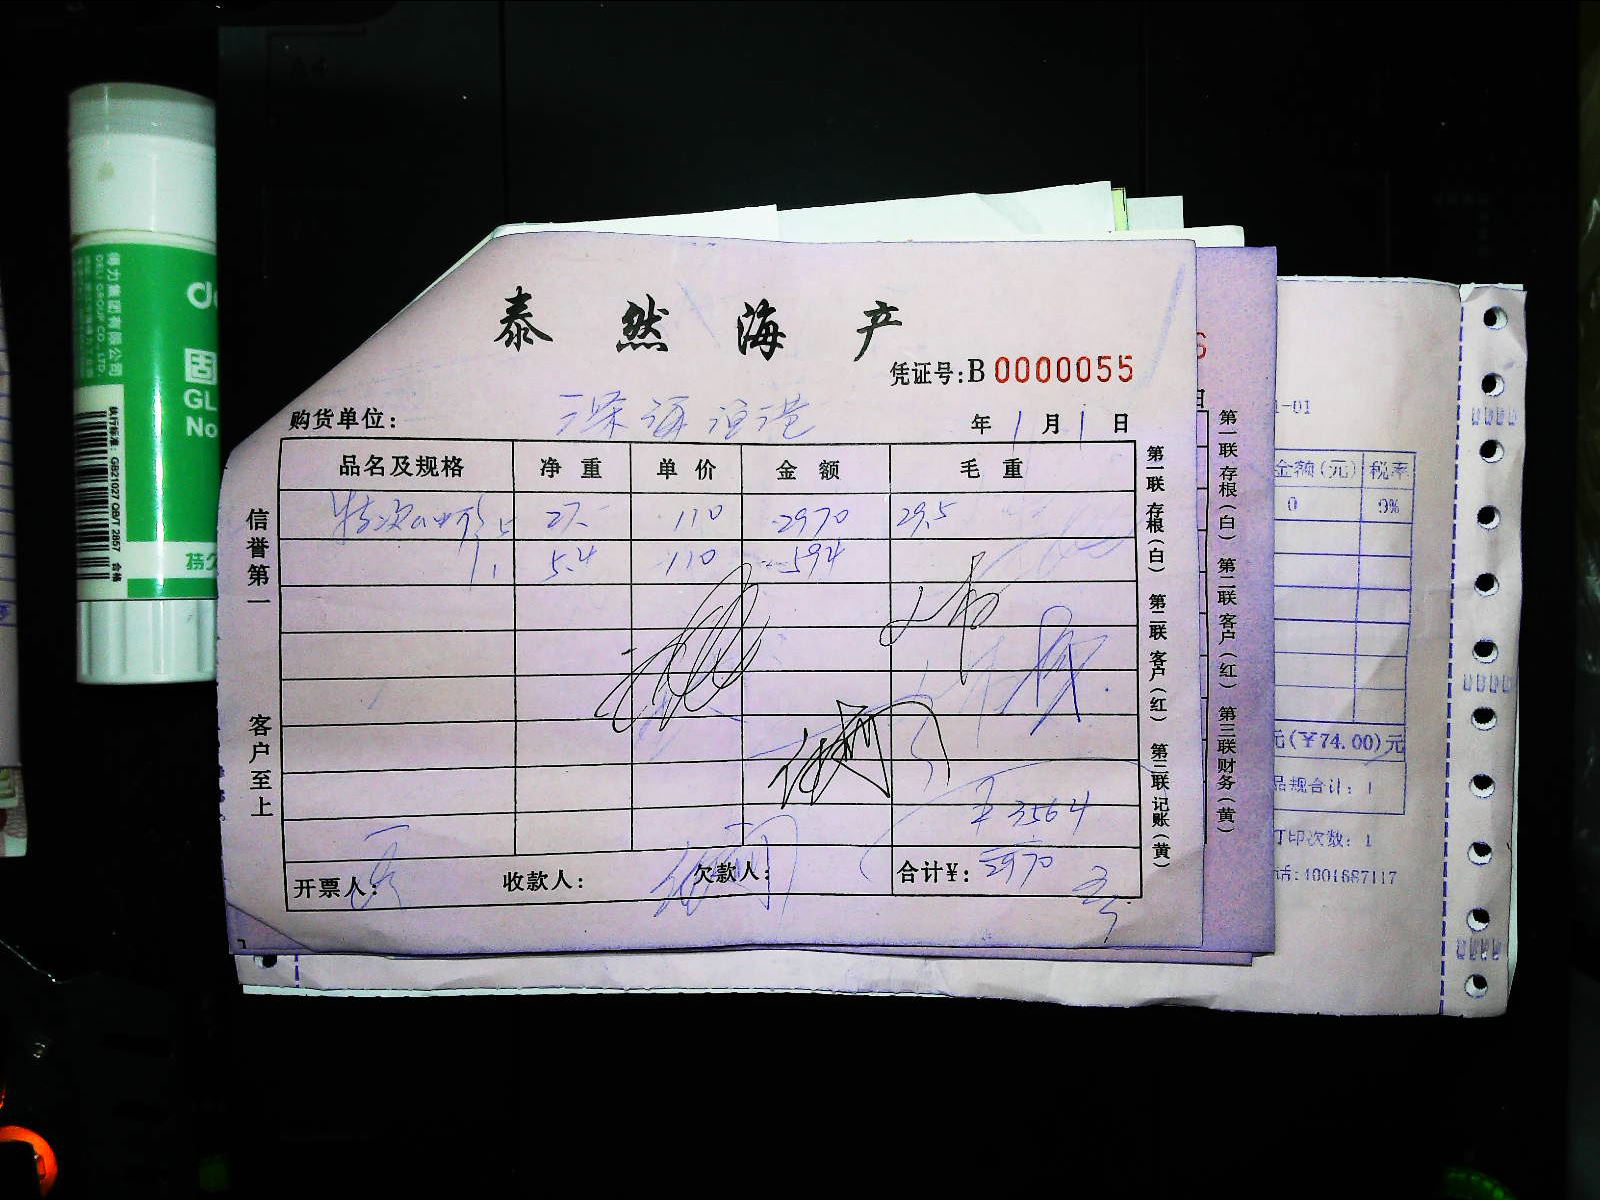 泰然海产
凭证号:B 0000055
购货单位: 深海渔港 年 1 月 1 日
品名及规格 净重 单价 金额 毛重
27.- 110 2970 29.5
5.4 110 594
¥3564
开票人: 收款人: 欠款人: 合计¥: 2970
信誉第一 客户至上
第一联 存根(白) 第二联 客户(红) 第三联 记账(黄)
第一联 存根(白) 第二联 客户(红) 第三联 财务(黄)
6
日
1-01
金额(元) 税率
0 9%
元(¥74.00)元
品规合计: 1
打印次数: 1
话:4001687117
得力集团有限公司
DELI GROUP CO., LTD.
执行标准: GB21027 QB/T 2857 合格
de
固
GL
No
持久